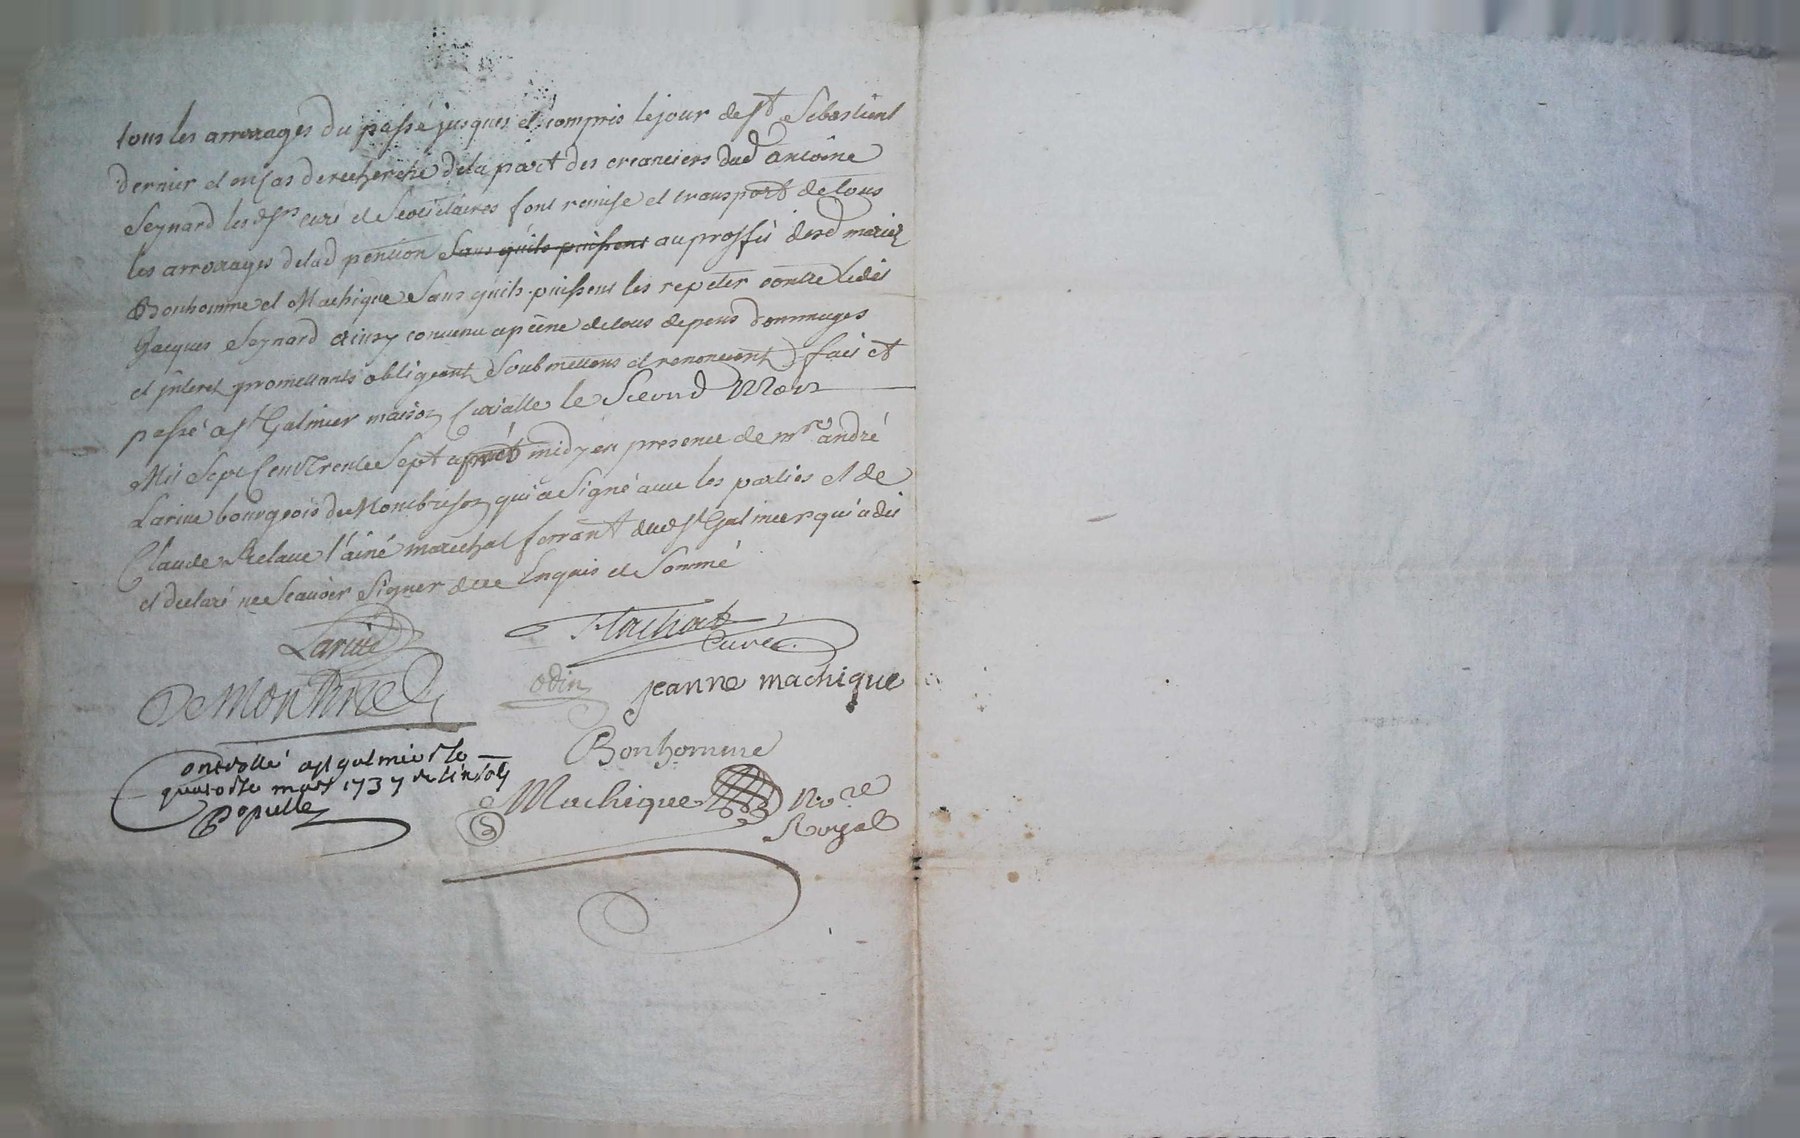 tous les arrerages du passé jusques et compris le jour de st Sebastient
dernier et en cas de recherche de la part des creanciers dud antoine
Seynard les srs curé et Societaires font remise et transport de tous
les arrerages de lad pention sans quils puissent au proffit desd mariez
Bonhomme et Machique Sans quils puissent les repeter contre ledit
Jacques Seynard ainsy convenu a peine de tous depens dommages
et jnterets promettants obligeant Soubmettens et renonceent) fait et
passé a st Galmier maison Curialle le Second Mars
Mil Sept Cent Trente Sept apres midy en presence de mre andré
Larive bourgeois de Montbrison qui a Signé avec les parties et de
Claude l'ainé marechal ferrant dud st Galmier qui a dit
et declaré ne Scavoir Signer de ce Enquis et Sommé
Larive
Flachat
Curé
odin
jeanne machique
Bonhomme
Machique No.re
Royal
Controllé a st galmier le
mars 1737